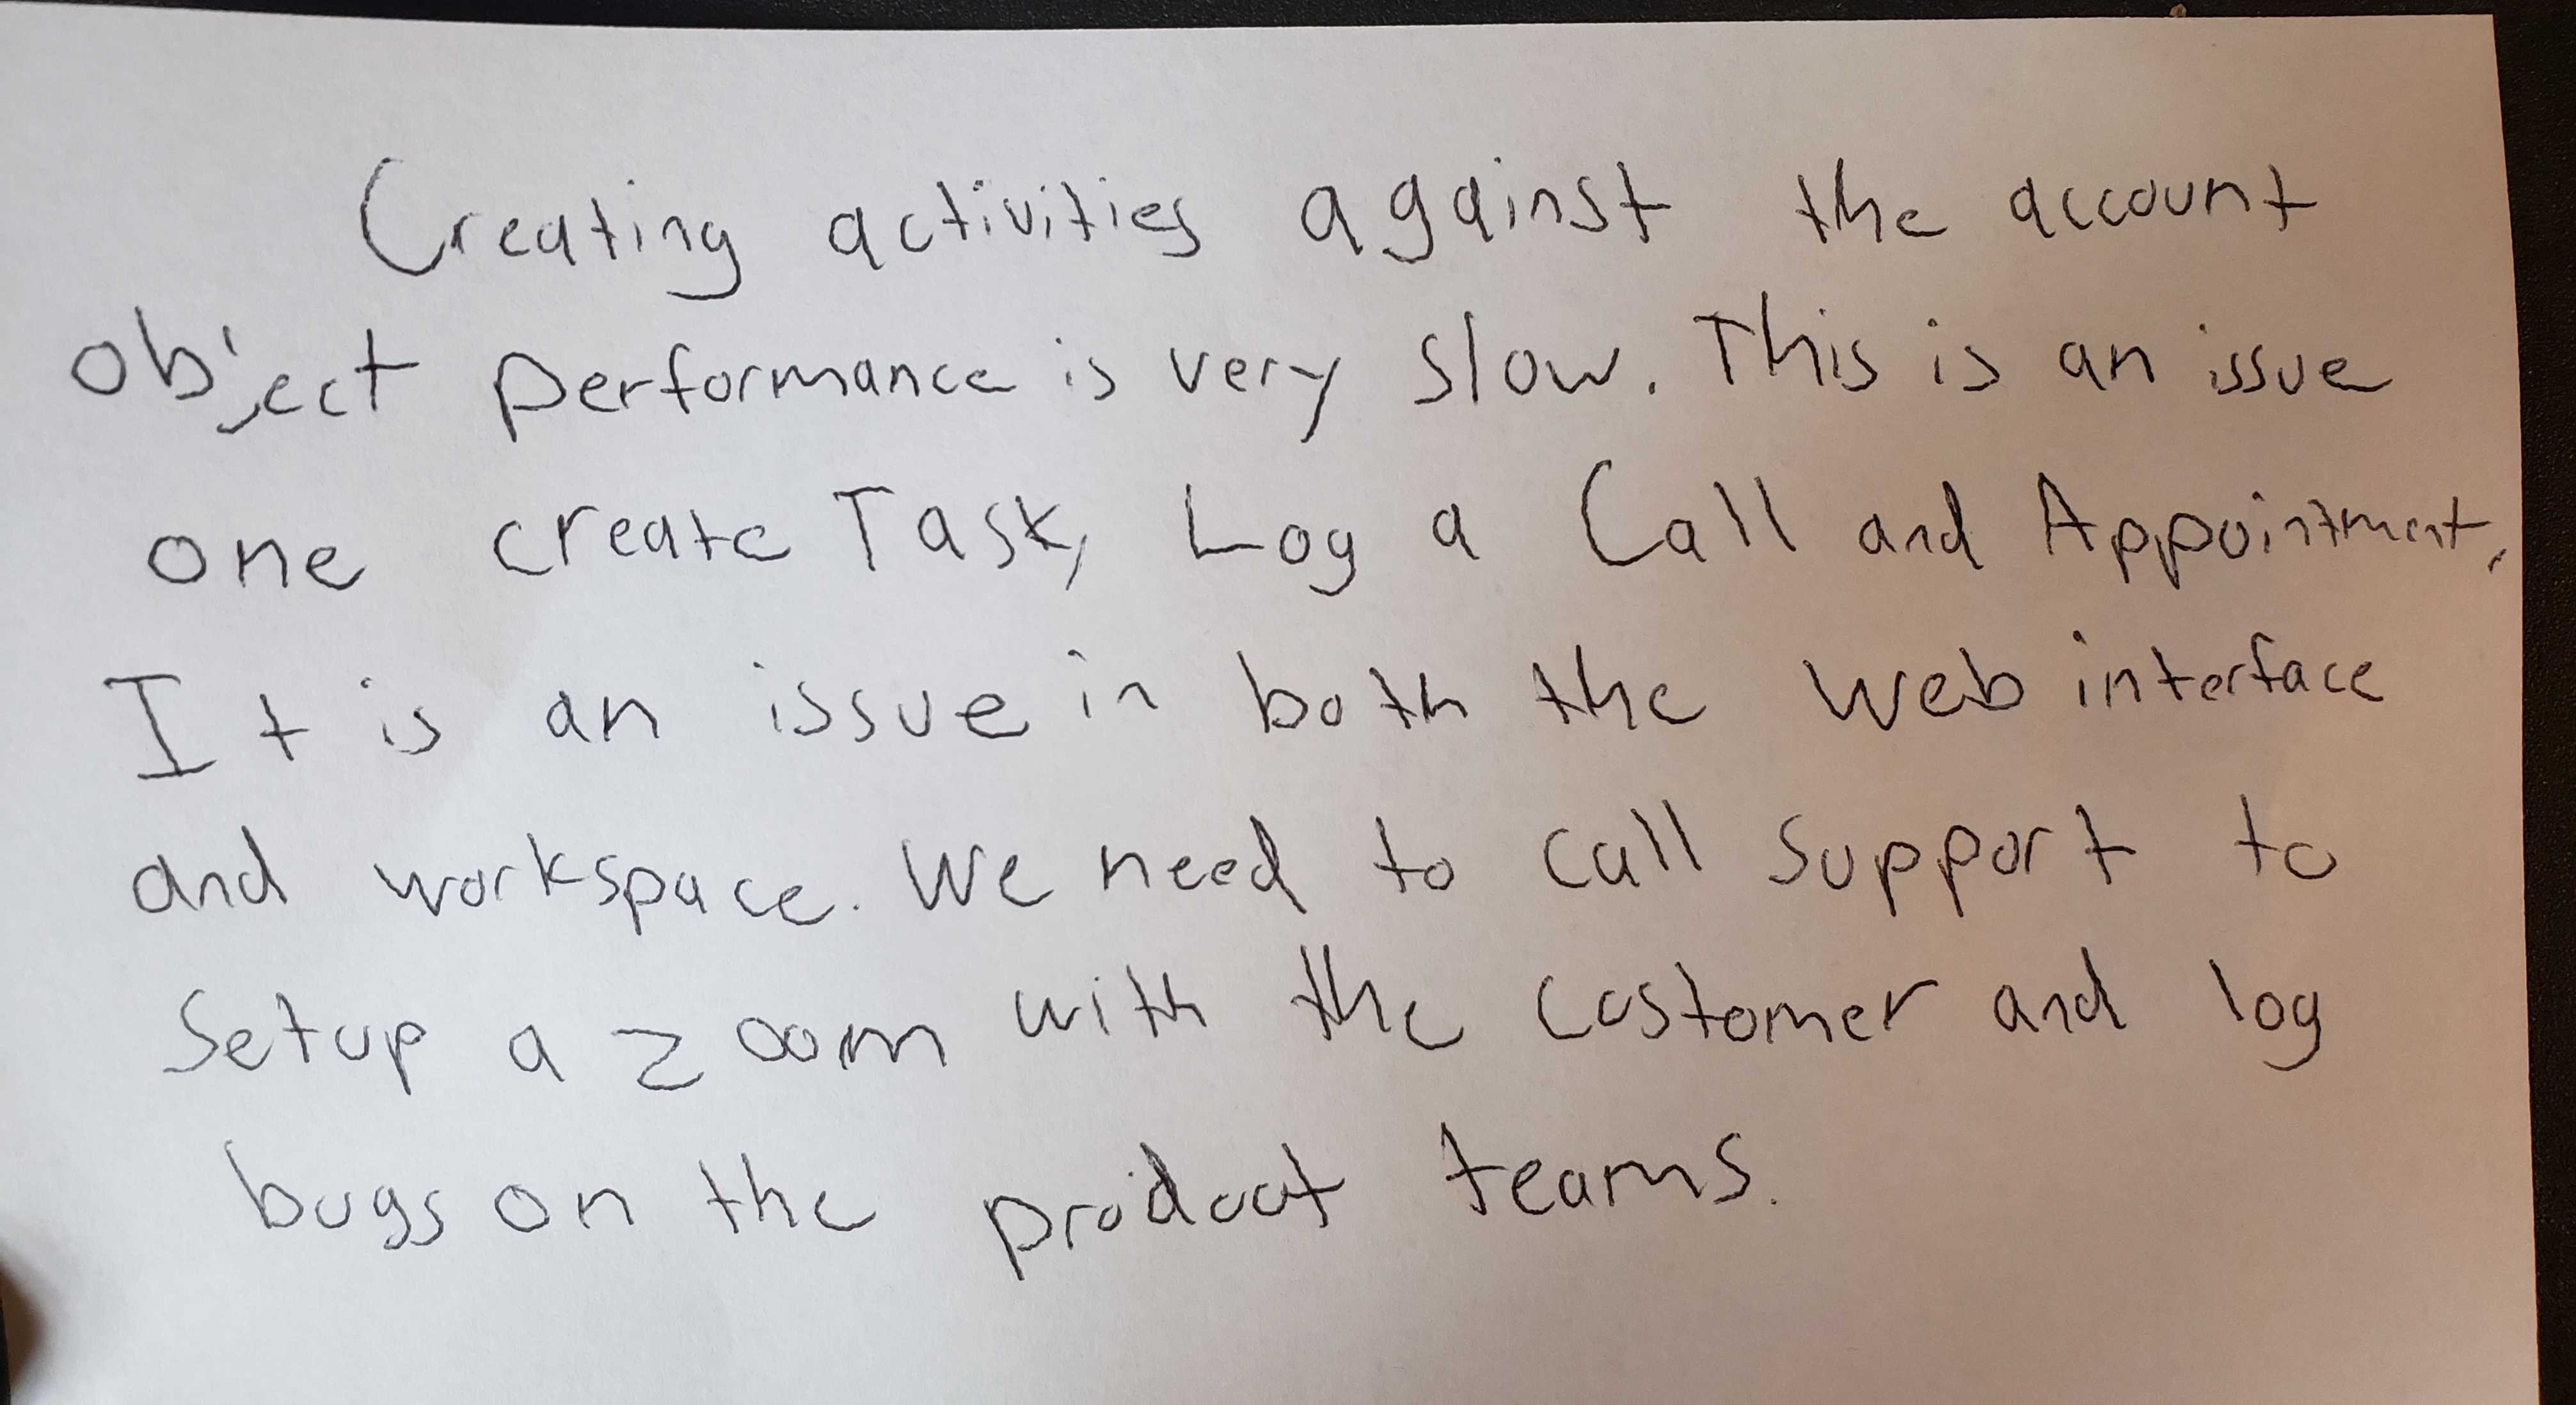 Creating activities against the account
object performance is very slow. This is an issue
one create Task, Log a Call and Appointment,
It is an issue in both the web interface
and workspace. We need to call support to
Setup a zoom with the customer and log
bugs on the product teams.